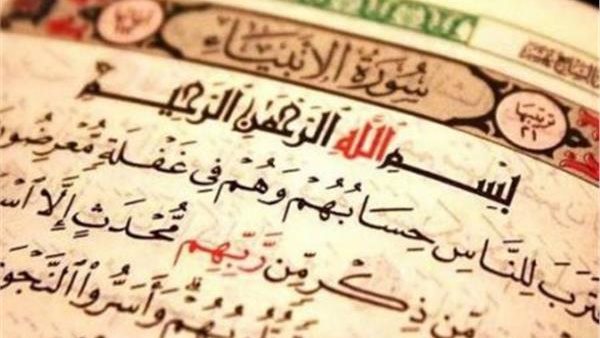 سُورَةُ الأَنبِيَاءِ
ترتيبها ٢١
بِسْمِ اللَّهِ الرَّحْمَٰنِ الرَّحِيمِ
قْتَرَبَ لِلنَّاسِ حِسَابُهُمْ وَهُمْ فِي غَفْلَةٍ مُّعْرِضُونَ
مِّن ذِكْرٍ مِّن رَّبِّهِم مُّحْدَثٍ إِلَّا اسْ
وَأَسَرُّوا النَّجْوَ